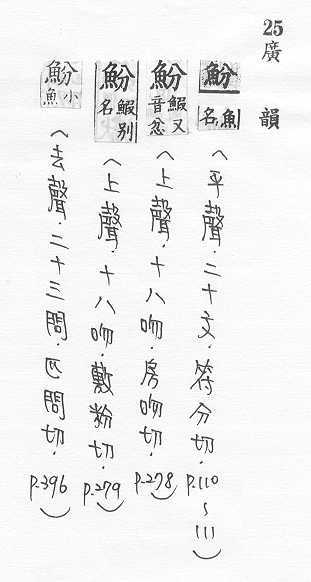 25 廣韻
魵 魚名 (平聲.二十文.符分切.P.110~111)
魵 鰕又音忿 (上聲.十八吻.房吻切.P.278)
魵 鰕別名 (上聲.十八吻.敷粉切.P.279)
魵 小魚 (去聲.二十三問.匹問切.P.396)